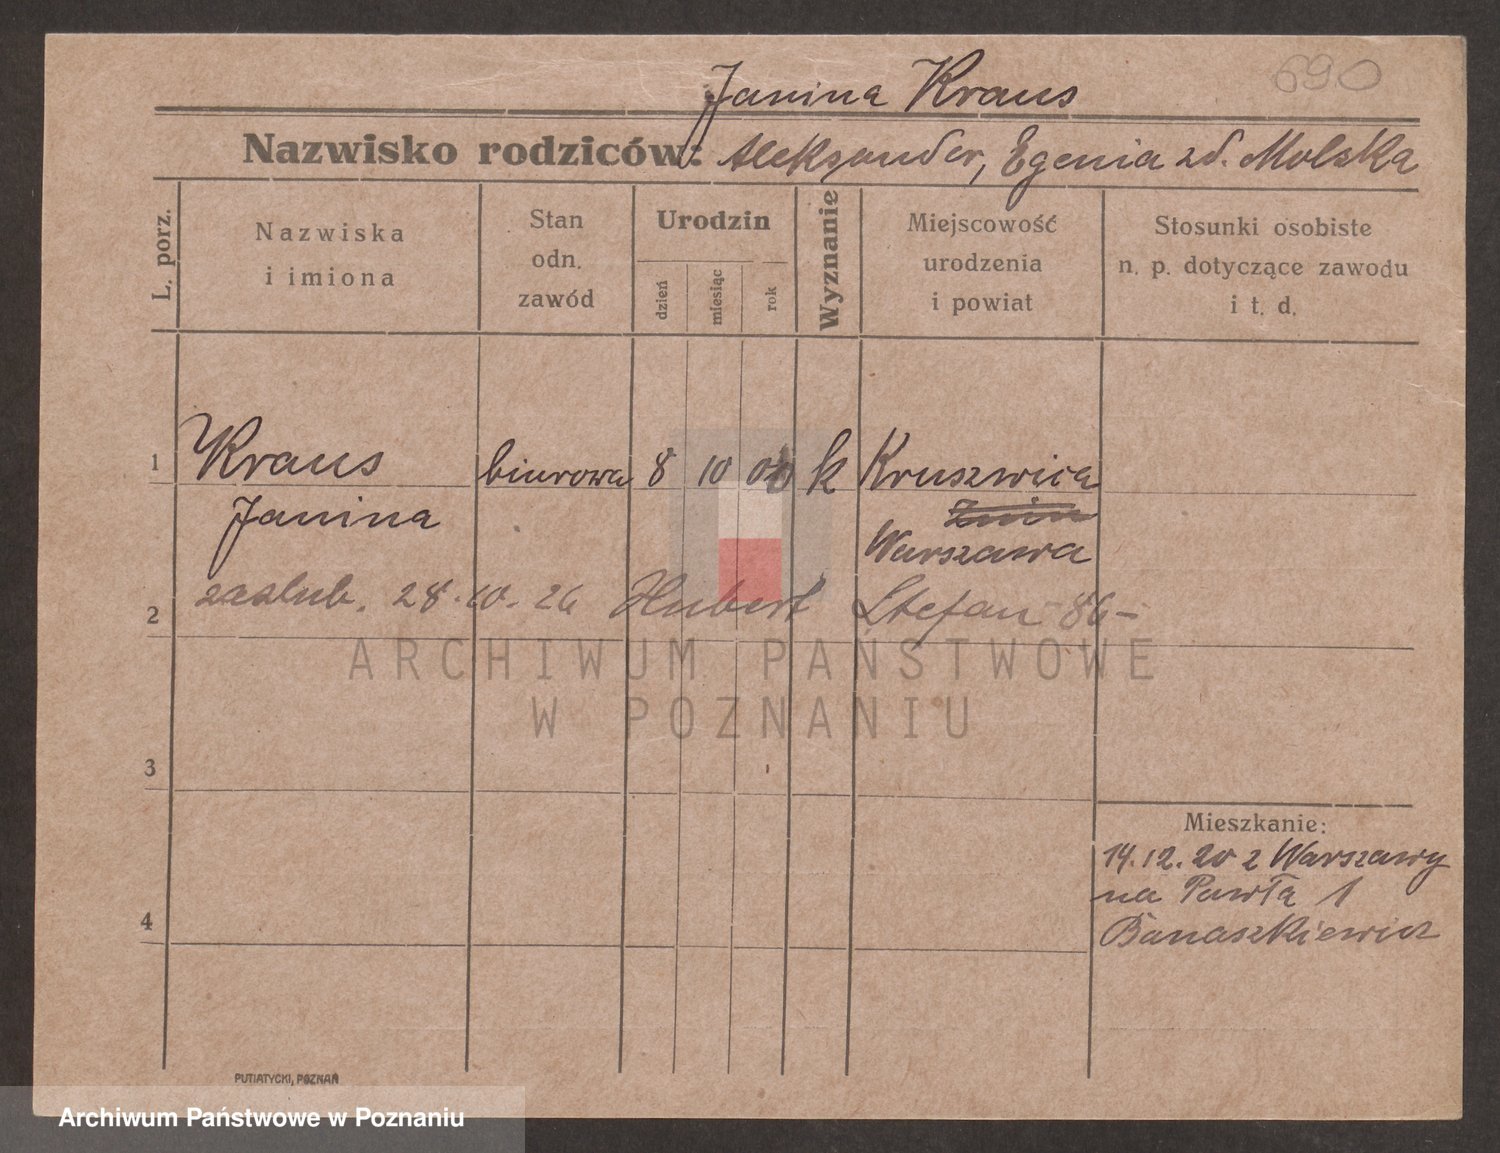 690
Janina Kraus
Nazwisko rodziców: Aleksander, Egenia zd. Molska
L. porz.
Nazwiska
i imiona
Stan
odn.
zawód
Urodzin
dzień
miesiąc
rok
Wyznanie
Miejscowość
urodzenia
i powiat
Stosunki osobiste
n. p. dotyczące zawodu
i t. d.
1 Kraus biurowa 8 10 00 k Kruszwica
Janina Żnin
Warszawa
2 zaslub. 28.10.26 Hubert Stefan 86-
ARCHIWUM PAŃSTWOWE
W POZNANIU
3
Mieszkanie:
14.12.20 z Warszawy
na Pawła 1
4 Banaszkiewicz
PUTIATYCKI, POZNAŃ
Archiwum Państwowe w Poznaniu